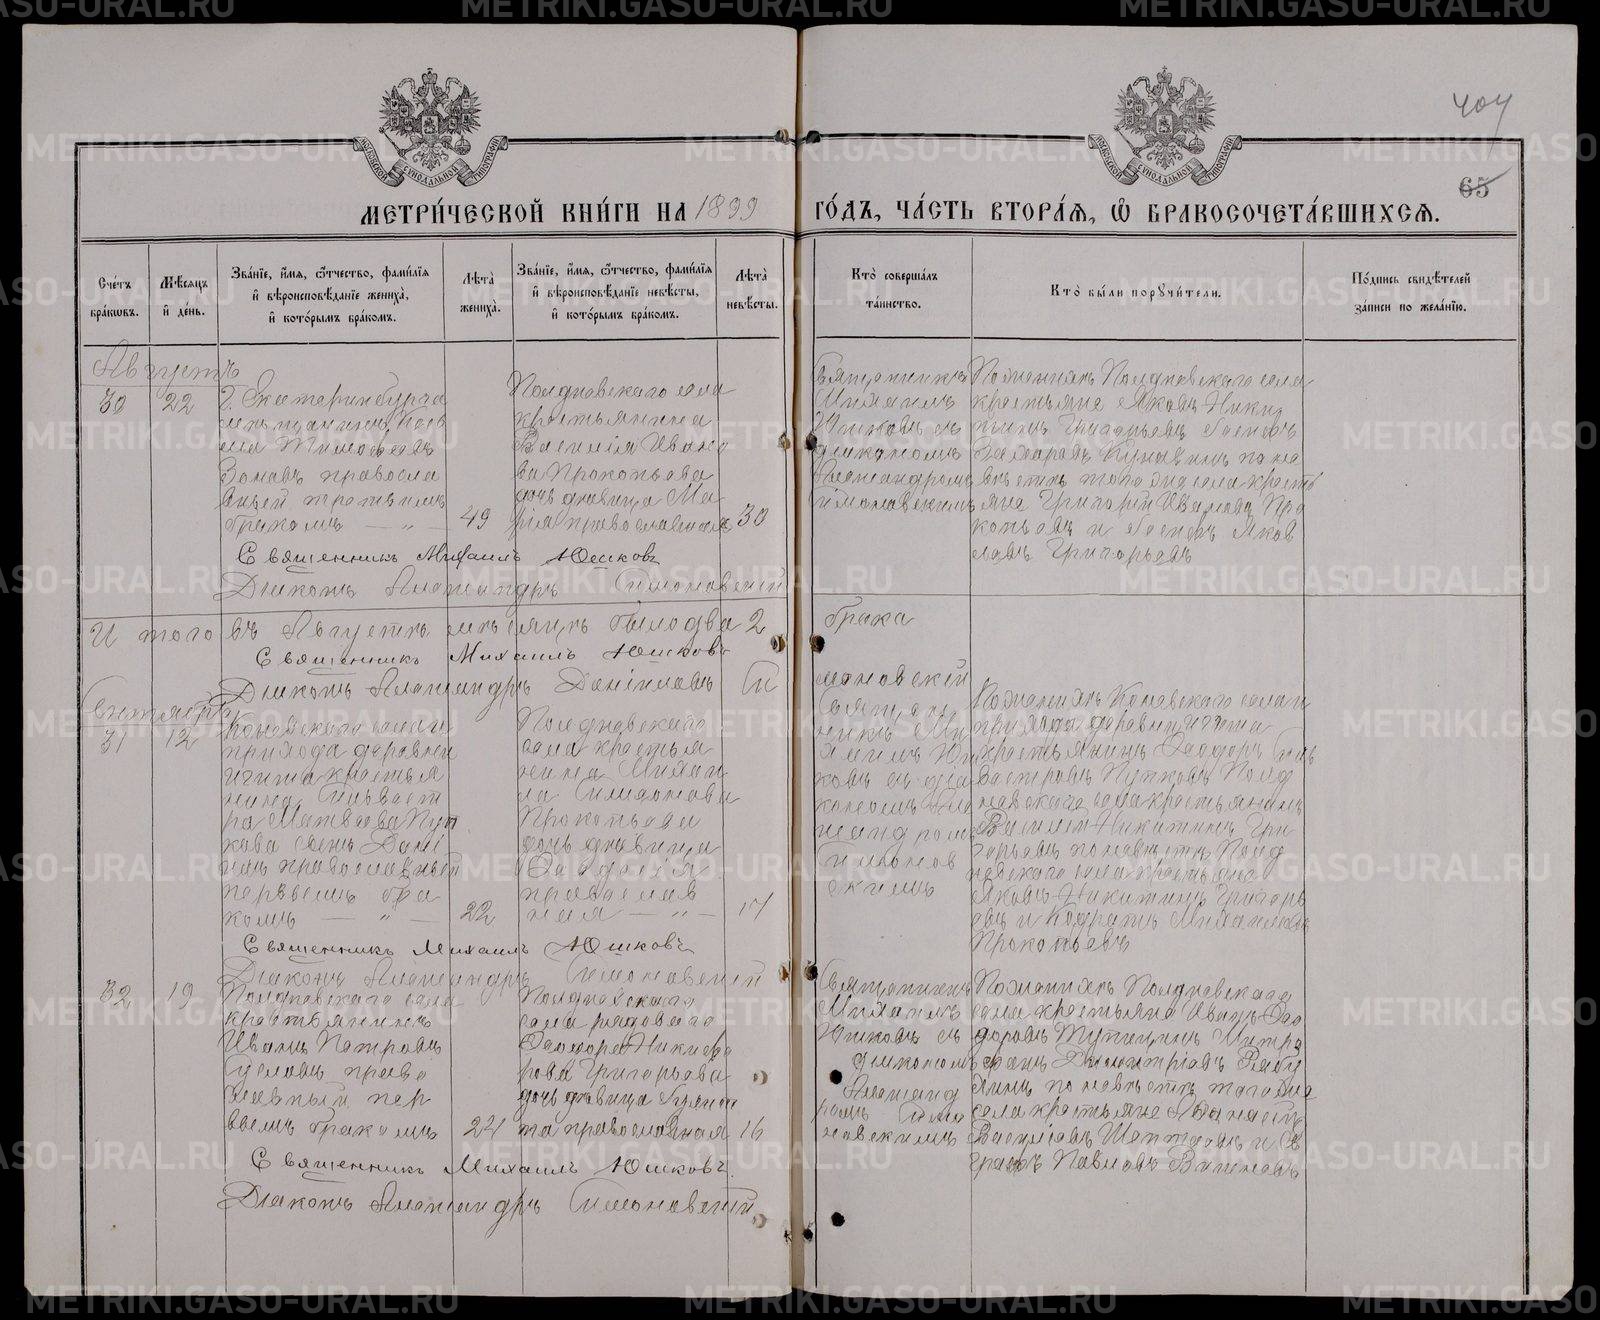 404
65
МЕТРИ́ЧЕСКОЙ КНИ́ГИ НА 1899 ГО́ДЪ, ЧА́СТЬ ВТОРА́Я, Ѿ БРАКОСОЧЕТА́ВШИХСЯ.
Сче́тъ бра́ковъ.
Мѣ́сяцъ и҆ де́нь.
Зва́нїе, и҆́мя, ѻ҆́тчество, фами́лїя и҆ вѣроисповѣ́данїе жениха̀, и҆ кото́рымъ бра́комъ.
Лѣ́та жениха̀.
Зва́нїе, и҆́мя, ѻ҆́тчество, фами́лїя и҆ вѣроисповѣ́данїе невѣ́сты, и҆ кото́рымъ бра́комъ.
Лѣ́та невѣ́сты.
Кто̀ соверша́лъ та́инство.
Кто̀ бы́ли порꙋчи́тели.
По́дпись свидѣ́телей за́писи по жела́нїю.
Августъ
30
22
Г. Екатеринбурга
мѣщанинъ Косъ
ма Тимофеевъ
правосла
вный третьимъ
бракомъ — „ —
49
Полдневскаго села
крестьянина
Василія Ивано
ва Прокопьева
дочь дѣвица Ма
рія православная
30
Священникъ
Михаилъ
Юшковъ съ
діакономъ
Александромъ
Симановскимъ
По женихѣ Полдневскаго села
крестьяне Яковъ Ники
тинъ Григорьевъ
по не
вѣстѣ того же села крестъ
яне Григорій Ивановъ Про
копьевъ и Яков
левъ Григорьевъ
Священникъ Михаилъ Юшковъ
Діаконъ Александръ Симоновскій
Итого въ Августѣ мѣсяцѣ было два 2 брака
Священникъ Михаилъ Юшковъ
Діаконъ Александръ Даніиловъ Си
мановскій
Сентябрь
31
12
прихода деревни
крестья
нина Сильвест
ра Матвѣева Пуп
кова сынъ Дані
илъ православный
первымъ бра
комъ — „ —
22
Полдневскаго
села крестья
нина Михаи
ла Симеонова
Прокопьева
дочь дѣвица
Евдокія
православ
ная — „ —
17
Священ
никъ Ми
хаилъ Юш
ковъ съ діа
кономъ Але
ксандромъ
Симонов
скимъ
прихода деревни
крестьянинъ Ѳеодоръ Силь
вестровъ Пупковъ Полд
невскаго села крестьянинъ
Василій Никитинъ Гри
горьевъ по невѣстѣ Полд
невскаго села крестьяне
Яковъ Никитинъ Григорь
евъ и Кодратъ Михаиловъ
Прокопьевъ
Священникъ Михаилъ Юшковъ
Діаконъ Александръ Симоновскій
32
19
Полдневскаго села
крестьянинъ
Иванъ Петровъ
право
славный пер
вымъ бракомъ
24
Полдневскаго
села рядоваго
Ѳеодора Никифо
рова Григорьева
дочь дѣвица
та православная
16
Священникъ
Михаилъ
Юшковъ съ
діакономъ
Александ
ромъ Симо
новскимъ
По женихѣ Полдневскаго
села крестьяне Иванъ Ѳео
доровъ Митро
фанъ Димитріевъ
по невѣстѣ того же
села крестьяне
Васильевъ и
Павловъ
Священникъ Михаилъ Юшковъ.
Діаконъ Александръ Симоновскій
METRIKI.GASO-URAL.RU